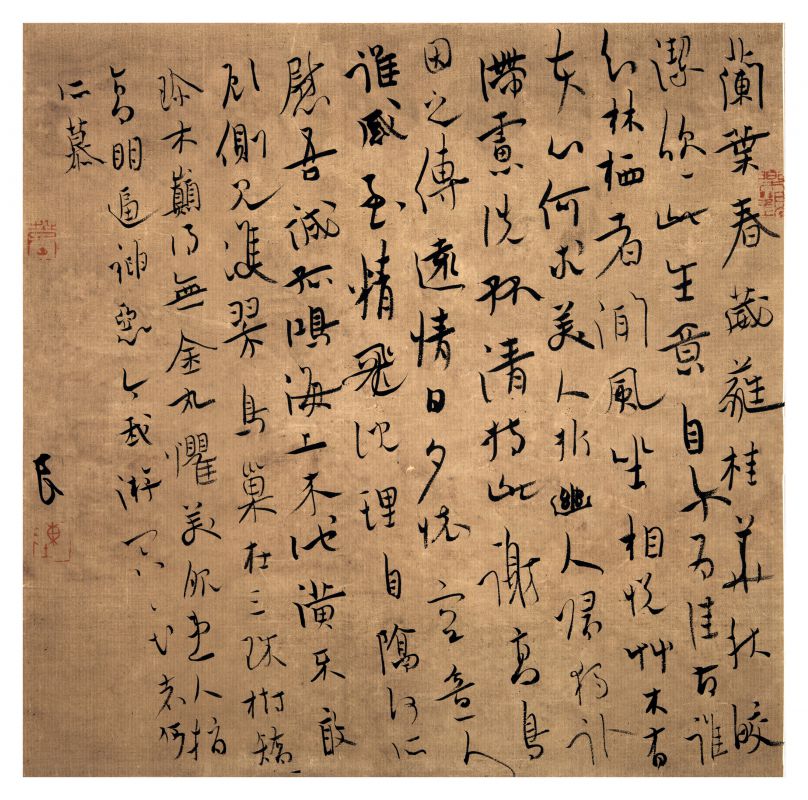 蘭葉春葳蕤桂華秋皎
潔欣〻此生意自爾為佳節誰
知林栖者聞風坐相悅艸木有
本心何求美人折幽人歸獨臥
滯慮洗孤清持此謝高鳥
因之傳遠情日夕懷空意人
誰感至精飛沉理自隔何所
慰吾誠孤鴻海上来池潢不敢
顧側見雙翠鳥巢在三珠樹矯〻
珍木巔得無金丸懼美服患人指
高明逼神惡今我游冥〻弋者何
所慕
良